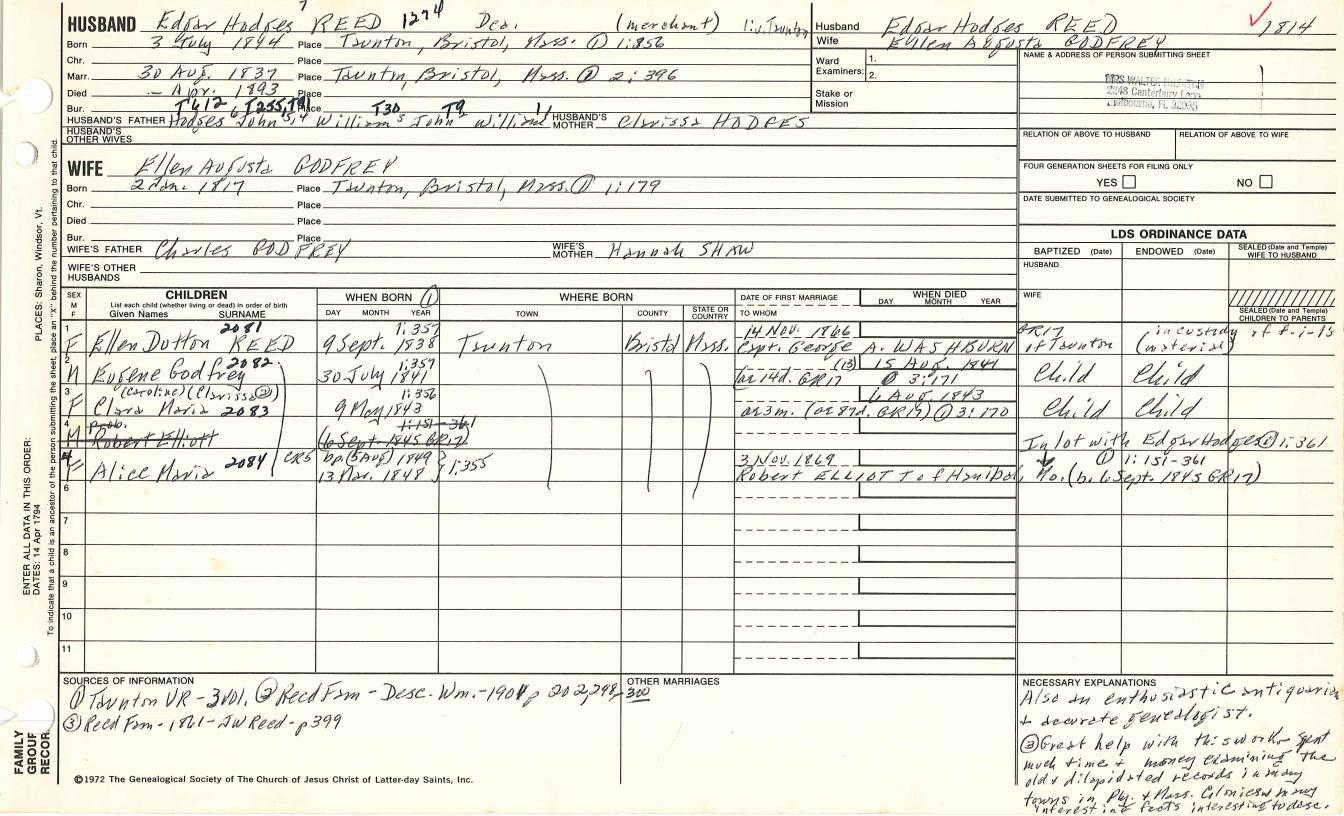 HUSBAND Edgar Hodges REED 1274 Des. (merchant) liv. Taunton
Born 3 July 1844 Place Taunton, Bristol, Mass. ① 1:356
Chr. Place
Marr. 30 Aug. 1837 Place Taunton, Bristol, Mass. ① 2:396
Died – Apr. 1893 Place
Bur. Place
T412 T255, T91 T30 T9
HUSBAND'S FATHER Hodges John William John William HUSBAND'S MOTHER Clarissa HODGES
HUSBAND'S OTHER WIVES
WIFE Ellen Augusta GODFREY
Born 2 Jan. 1817 Place Taunton, Bristol, Mass. ① 1:179
Chr. Place
Died Place
Bur. Place
WIFE'S FATHER Charles GODFREY WIFE'S MOTHER Hannah SHAW
WIFE'S OTHER HUSBANDS
Husband Edgar Hodges REED 1814
Wife Ellen Augusta GODFREY
Ward Examiners: 1.
2.
Stake or Mission
NAME & ADDRESS OF PERSON SUBMITTING SHEET
MRS WALTER
2248 Canterbury Lane
Melbourne, FL
RELATION OF ABOVE TO HUSBAND RELATION OF ABOVE TO WIFE
FOUR GENERATION SHEETS FOR FILING ONLY
YES NO
DATE SUBMITTED TO GENEALOGICAL SOCIETY
LDS ORDINANCE DATA
BAPTIZED (Date) ENDOWED (Date) SEALED (Date and Temple) WIFE TO HUSBAND
HUSBAND
WIFE
SEALED (Date and Temple) CHILDREN TO PARENTS
SEX M F CHILDREN List each child (whether living or dead) in order of birth Given Names SURNAME WHEN BORN ① DAY MONTH YEAR WHERE BORN TOWN COUNTY STATE OR COUNTRY DATE OF FIRST MARRIAGE TO WHOM WHEN DIED DAY MONTH YEAR
1 2081 1:357 14 Nov. 1866 GR17 (in custody of f.-i-ls
F Ellen Dutton REED 9 Sept. 1838 Taunton Bristol Mass. Capt. George A. WASHBURN of Taunton (material)
2 2082 1:357 (13) 15 Aug. 1841
M Eugene Godfrey 30 July 1841 (or 14d. GR17 ① 3:171 Child Child
3 (Caroline) (Clarissa ②) 1:356 6 Aug. 1843
F Clara Maria 2083 9 May 1843 or 3m. (or 87d. GR17) ① 3:170 Child Child
4 prob. 1:151-361
M Robert Elliott (6 Sept. 1845 GR17 In lot with Edgar Hodges ① 1:361
4 CR5 bp. (5 Aug) 1849 1:355 3 Nov. 1869 ① 1:151-361
F Alice Maria 2084 13 Mar. 1848 Robert ELLIOT T of Hanibal, Mo. (b. 6 Sept. 1845 GR17)
6
7
8
9
10
11
SOURCES OF INFORMATION
① Taunton VR - 3 vol. ② Reed Fam - Desc. Wm. - 1901 p 202, 298-300
③ Reed Fam - 1861 - JW Reed - p 399
OTHER MARRIAGES
NECESSARY EXPLANATIONS
Also an enthusiastic antiquarian
+ accurate genealogist.
③ Great help with this work - spent
much time + money examining the
old + dilapidated records in many
towns in Ply. + Mass. Colonies
interesting facts interesting to desc.
©1972 The Genealogical Society of The Church of Jesus Christ of Latter-day Saints, Inc.
FAMILY GROUP RECOR
ENTER ALL DATA IN THIS ORDER:
DATES: 14 Apr 1794
PLACES: Sharon, Windsor, Vt.
To indicate that a child is an ancestor of the person submitting the sheet, place an "X" behind the number pertaining to that child.